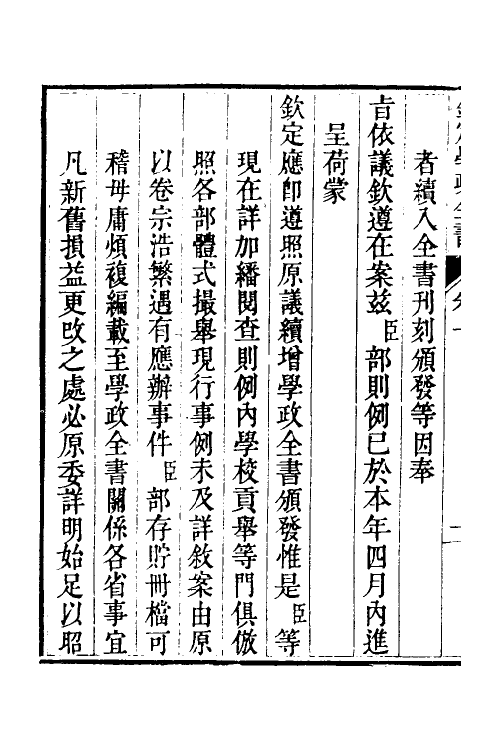 者續入全書刊刻頒發等因奉
旨依議欽遵在案兹臣部則例已於本年四月內進
呈荷蒙
欽定應即遵照原議續增學政全書頒發惟是臣等
現在詳加繙閱查則例內學校貢舉等門俱倣
照各部體式撮舉現行事例未及詳敘案由原
以卷宗浩繁遇有應辦事件臣部存貯冊檔可
稽毋庸煩複編載至學政全書關係各省事宜
凡新舊損益更改之處必原委詳明始足以昭